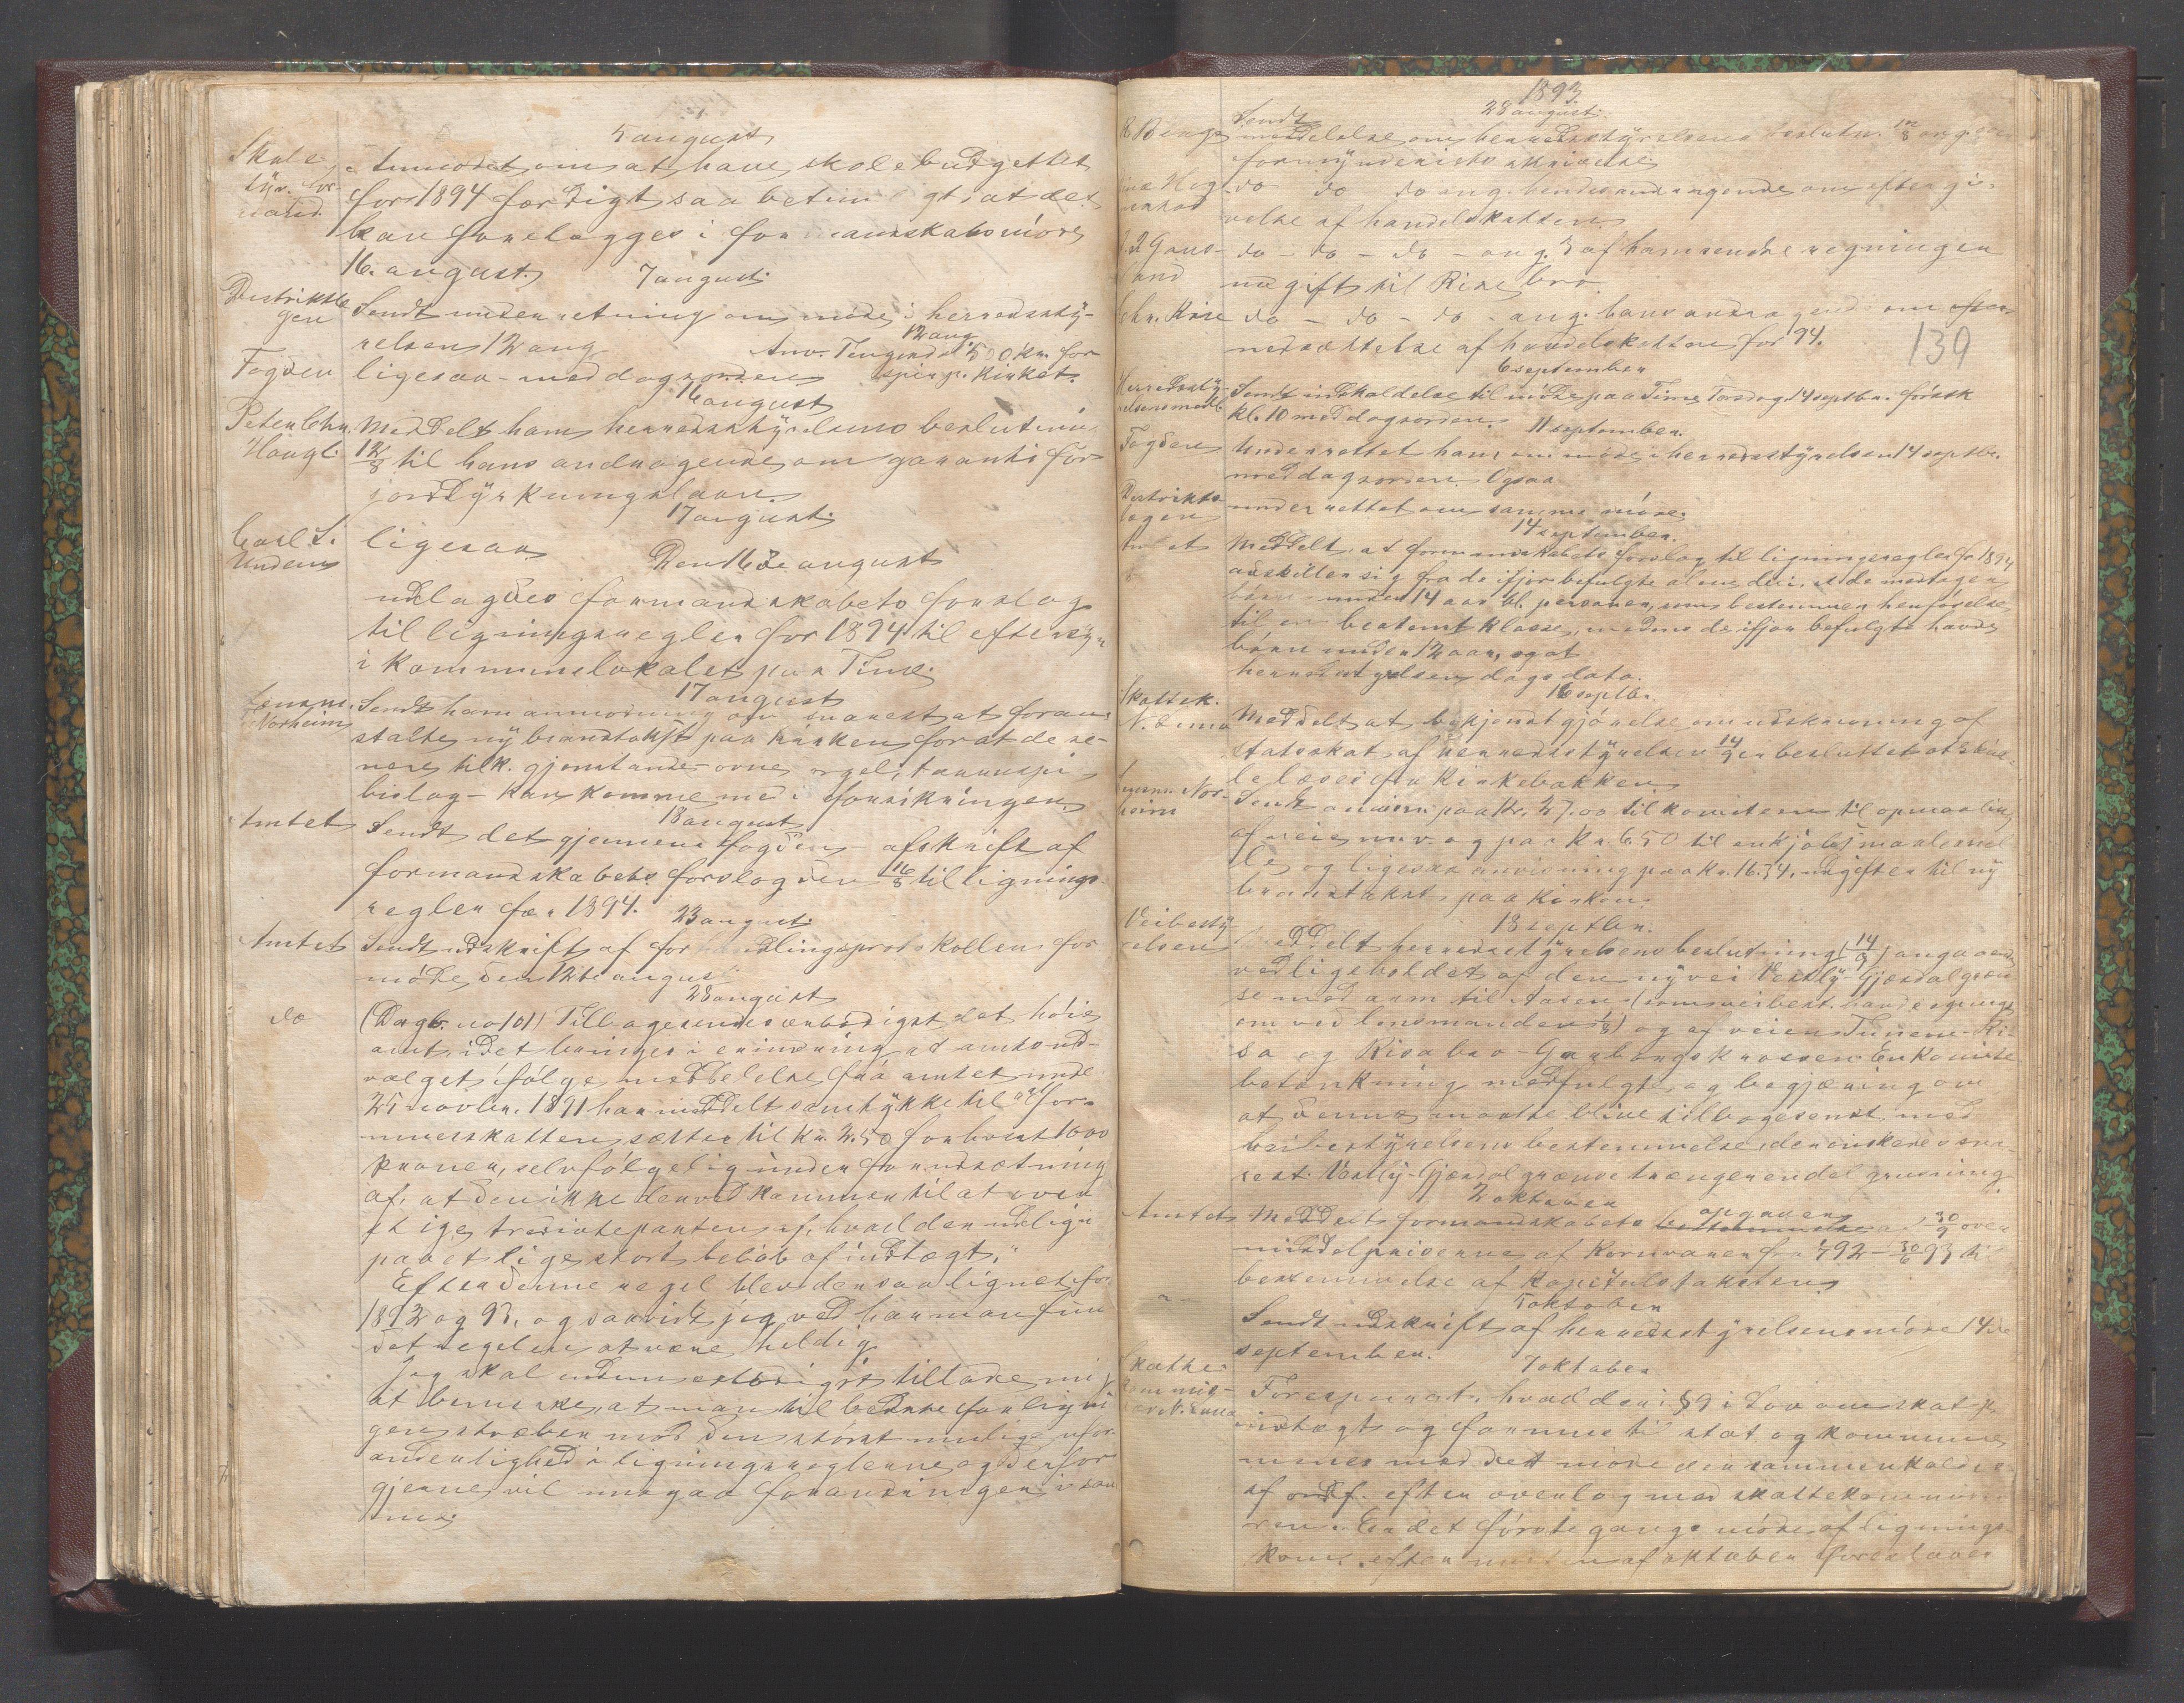 5 august
Skole
Anmodet om at have skolebudgettet
for 1894 færdigt saa at det
kan forelægges i formandskabsmöde
16. august.
7 august.
Distriktslæ
gen
Sendt underretning om möde i herredssty-
relsen 12 aug
12 aug.
Anv. 500 kr. for
Fogden
ligesaa - med dagsorden
16 august
Peter Chr.
Haugl.
Meddelt ham herredsstyrelsens beslutning
12/8 til hans andragende om garanti for
jorddyrkningslaan.
17 august.
Carl S.
Undem
ligesaa
Den 16de august
udlagdes formandskabets forslag
til ligningsregler for 1894 til eftersyn
i kommunelokalet paa Time.
17 august
Lensm.
Norheim
Sendt ham anmodning om snarest at foran-
stalte ny brandtakst paa kirken for at de se-
nere tilk. gjenstande - ovne, orgel,
bislag - kan komme med i forsikringen.
18 august
Amtet
Sendt det gjennem fogden - afskrift af
formandskabets forslag den 16/8 til lignings-
regler for 1894.
23 august.
Amtet
Sendt udskrift af forhandlingsprotokollen for
möde den 12te august
28 august
do
(Dagb. no 101) Tilbagesendes ærbödigst det höie
amt, idet bringes i erindring at amtsud-
valget ifölge meddelelse fra amtet under
25 novbr. 1891 har meddelt samtykke til at for-
mueskatten sættes til kr. 2.50 for hvert 1000
kroner, selvfölgelig under forudsætning
af, at den ikke derved kommer til at over
stige trediveparten af, hvad der udlignes
paa et lige stort belöb af indtægt."
Efter denne regel blev der saa lignet for
1892 og 93, og saavidt jeg ved har man fun
det regelen at være heldig.
Jeg skal tillade mig
at bemerke, at man til bedste for lignin
gen stræber mod den störst mulige ufor
anderlighed i ligningsreglerne og derfor
gjerne vil undgaa forandringer i sam
me.
1893
28 august.
B Berge
Sendt
meddelelse om herredsstyrelsens beslutn. 12/8 ang.
do do do ang. hendes andragende om eftergi-
velse af handelskatten
do - do - do - ang. 3 af ham sendte regninger
udgift til Rise bro.
Chr. Rise
do - do - do - ang. hans andragende om
nedsættelse af handelskatten for 94.
139
6 september
Herredssty-
relsens medl.
Sendt indkaldelse til möde paa Time Torsdag 14 septbr. förstk
kl. 10 med dagsorden.
11 september.
Fogden
Underrettet ham om möde i herredsstyrelsen 14 septbr.
med dagsorden. Ogsaa
Distrikts
lægen
underrettet om samme möde.
14 september.
Amtet
Meddelt, at formandskabets forslag til ligningsregler for 1894
adskiller sig fra de ifjor befulgte alene deri, at de medtager
börn under 14 aar bl. personer, som bestemmer henförelse
til en bestemt klasse, medens de ifjor befulgte havde
börn under 12 aar, og at
herredsstyrelsen dags dato.
16 septbr.
Skattek.
Meddelt at bekjendtgjörelse om udskrivning af
statsskat af herredsstyrelsen 14/9 er besluttet at skul-
le læses fra kirkebakken
Lensm. Nor-
heim
Sendt anvisn. paa kr. 27.00 til komiteen til opmaaling
af veie m.v. og paa kr. 6.50 til
og ligesaa anvisning paa kr. 16.34, udgifter til ny
brandtakst paa kirken.
18 septbr.
Veibesty-
relsen
Meddelt herredsstyrelsens beslutning (14/9) angaaende
vedligeholdet af den ny vei Vestly - Gjesdal græn
se med arm til Aasen (som veibest. havde
om ved lensmanden 1/8) og af veien Tunem - Ri-
sa og Risabro - Garborgskrossen. En komite
betænkning medfulgte, og begjæring om
at denne maatte blive tilbagesendt med
veibestyrelsens bestemmelse, der önskes sna-
rest. Vestly - Gjesdal grænse trænger en del grusning
2 oktober
Amtet
Meddelt formandskabets opgaver 30/9 over
middelpriserne af kornvarer fra 1/7 92 - 30/6 93 til
bestemmelse af kapitulstaksten
5 oktober
Sendt udskrift af herredsstyrelsens möde 14de
september.
7 oktober
Skatte-
kommis-
Forespurgt, hvad der i § 9 i Lov om skat p
indtægt og formue til stat og kommune
menes med det möde der sammenkaldes
af ordf. efter overlæg med skattekommissæ
ren. Er det förste gangs möde af lignings-
kom. efter midten af oktober